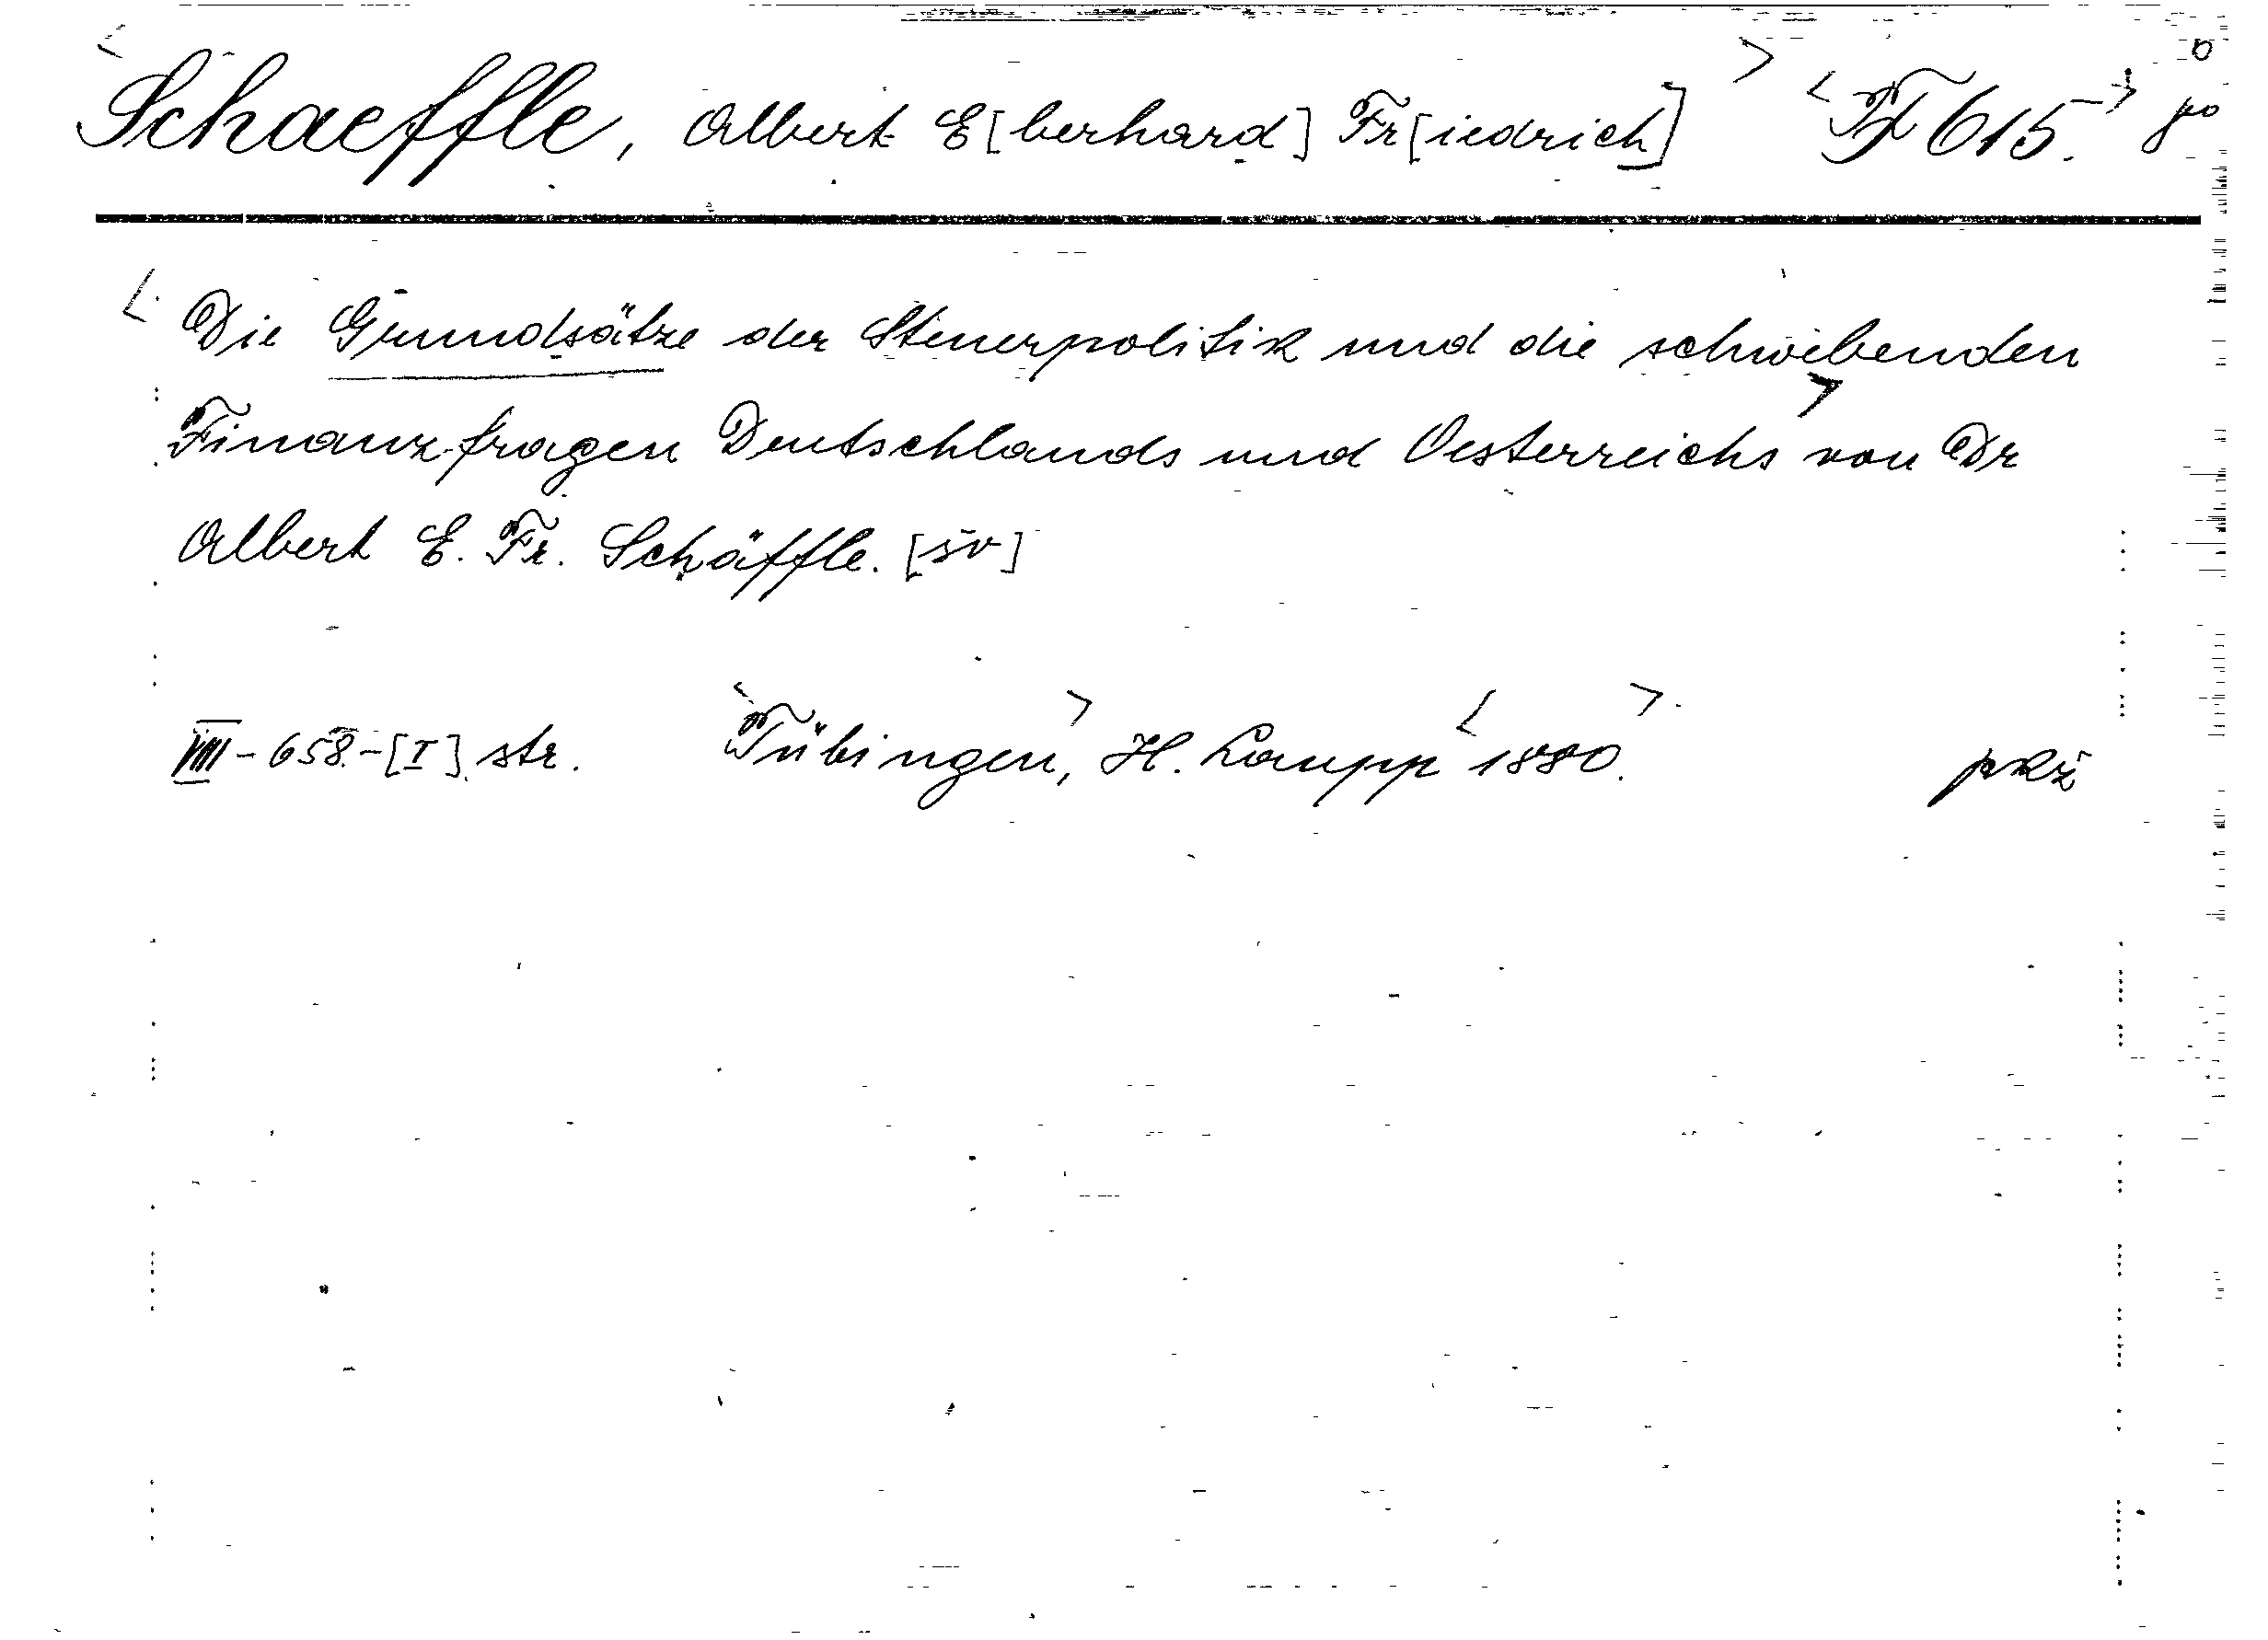 Schaeffle, Albert E[berhard] Fr[iedrich] 615.
Die Grundsätze der Steuerpolitik und die schwebenden
Finanz-fragen Deutschlands und Oesterreichs von Dr
Albert E. Fr. Schäffle. [šv]
VIII-658-[I] str. Tübingen, H. Laupp 1880. prž